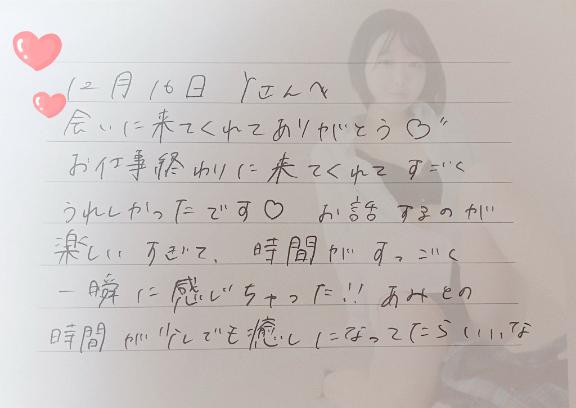 12月16日 Yさんへ
会いに来てくれてありがとう♡"
お仕事終わりに来てくれてすごく
うれしかったです♡ お話するのが
楽しいすぎて、時間がすっごく
一瞬に感じちゃった!! あみとの
時間が少しでも癒しになってたらいいな